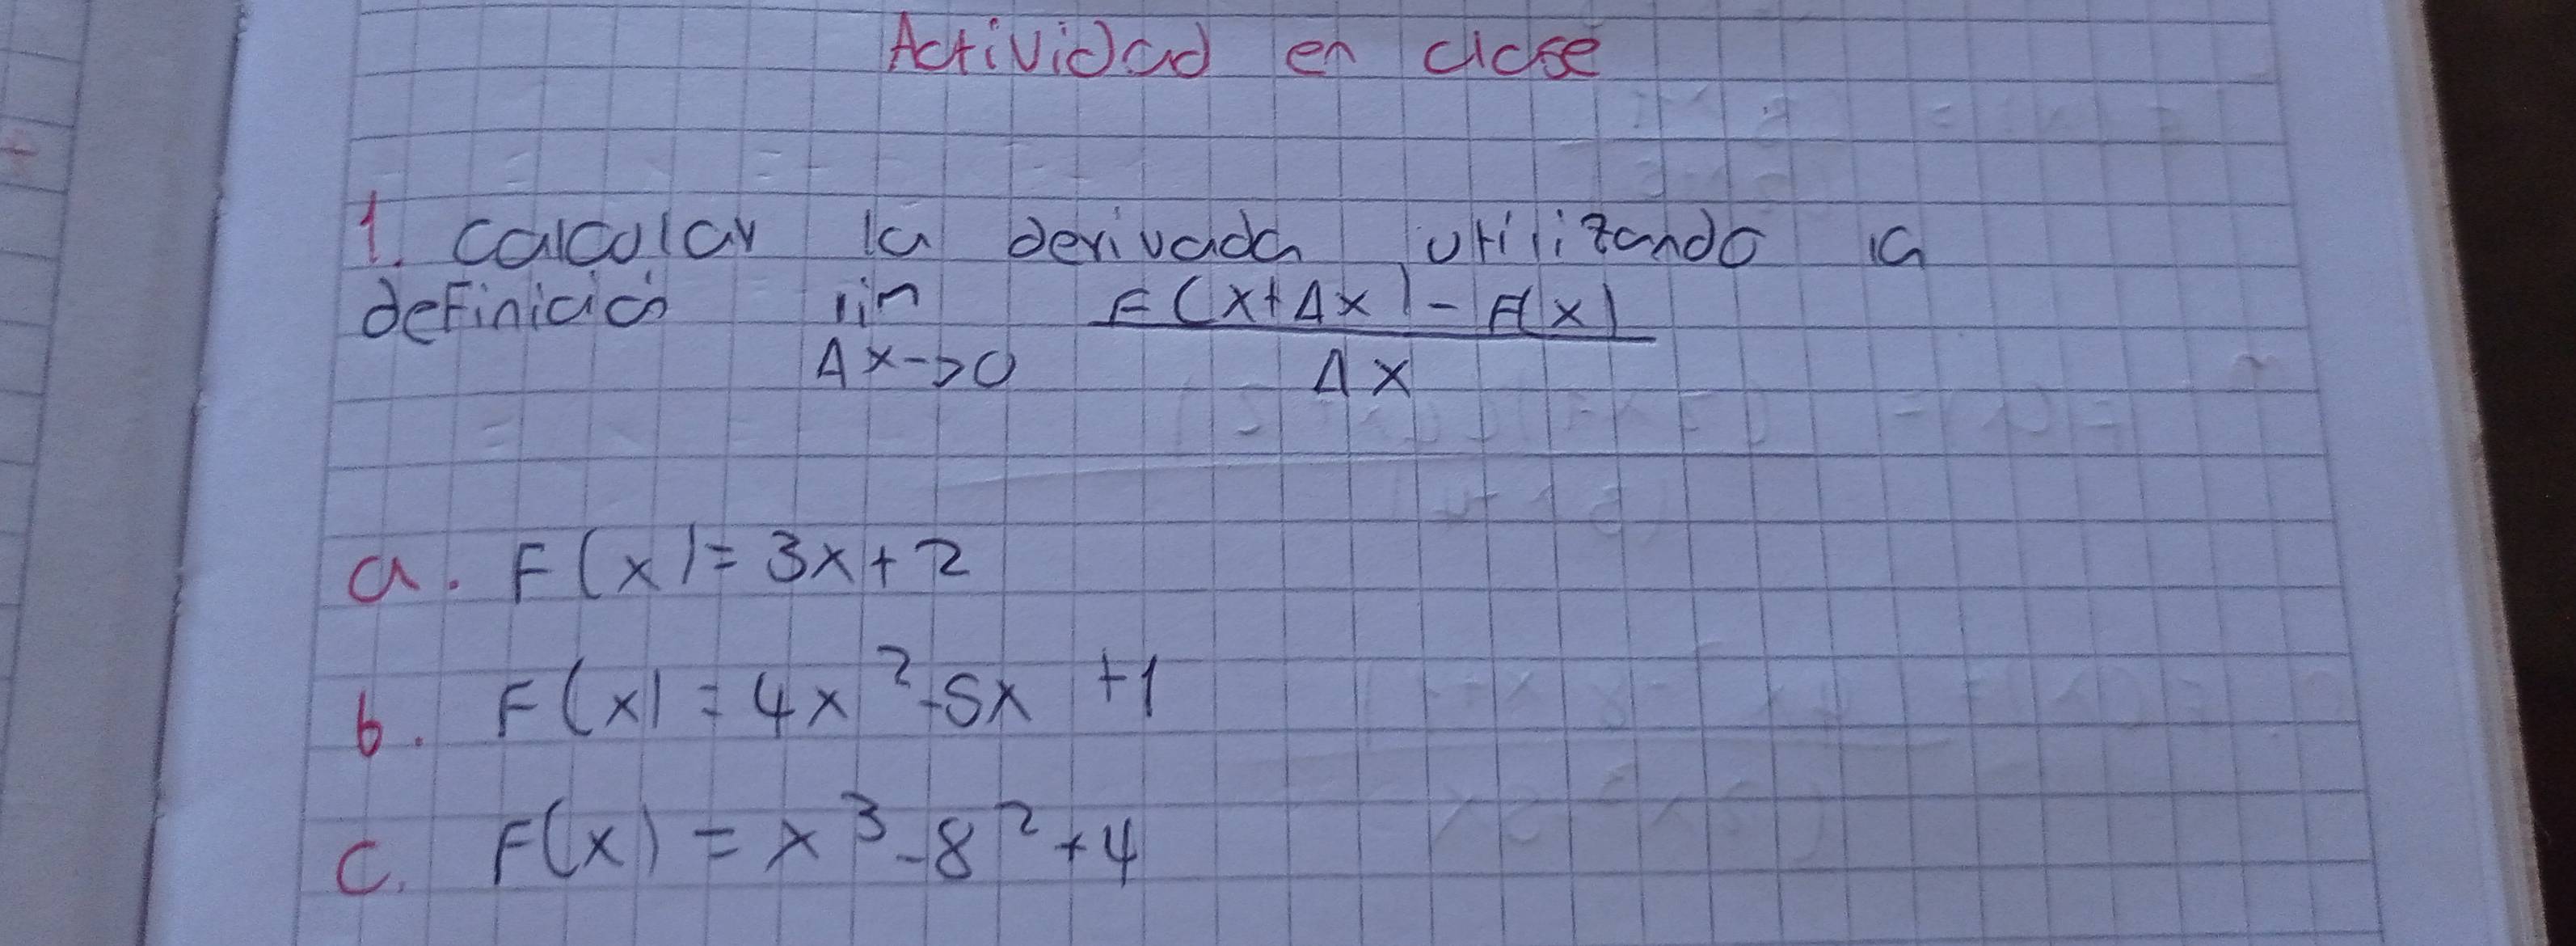 Actividad en clase
1. Calcular la derivada utilizando la
definición lim F(x+Δx) - F(x)
Δx->0 Δx
a. F(x) = 3x+2
b. F(x) = 4x²-5x +1
c. F(x) = x³-8²+4